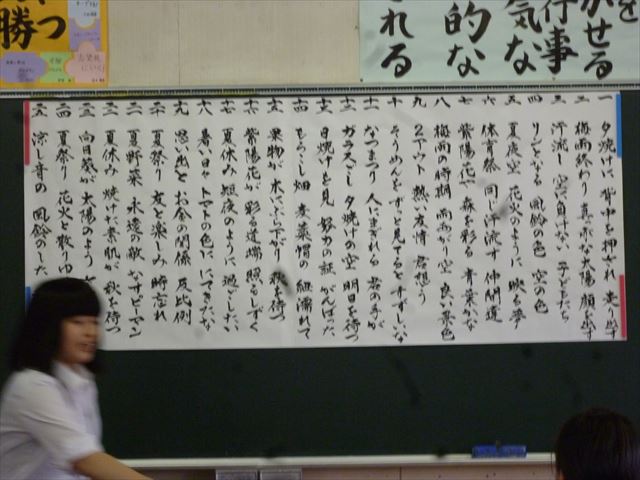 をかせる
な行事
気な
的な
れる
勝つ
一 夕焼けに 背中を押され 走り出す
二 梅雨終わり 真っ赤な太陽 顔を出す
三 汗流し 空に負けない 子どもたち
四 リンとなる 風鈴の色 空の色
五 夏夜空 花火のように 映る夢
六 体育祭 同じ汗流す 仲間達
七 紫陽花や 森を彩る 青葉かな
八 梅雨の時期 雨雨がり空 良い景色
九 2アウト 熱い友情 君想う
十 そうめんを ずっと見てると すずしいな
十一 なつまつり 人にまぎれる 君の手が
十二 ガラスごし 夕焼けの空 明日を待つ
十三 日焼けを見 努力の証 がんばった
十四 もろこし畑 麦藁帽の 紐濡れて
十五 果物が 水にぷかぷか 秋を待つ
十六 紫陽花が 彩る道端 照るしずく
十七 夏休み 短夜のように 過ごしたい
十八 暑い日々 トマトの色に にてきたな
十九 思い出と お金の関係 反比例
二十 夏祭り 友と楽しみ 時忘れ
二一 夏野菜 永遠の敵 なすピーマン
二二 夏休み 焼けた素肌が 秋を待つ
二三 向日葵が 太陽のよう
二四 夏祭り 花火と散りゆ
二五 涼し音の 風鈴のした